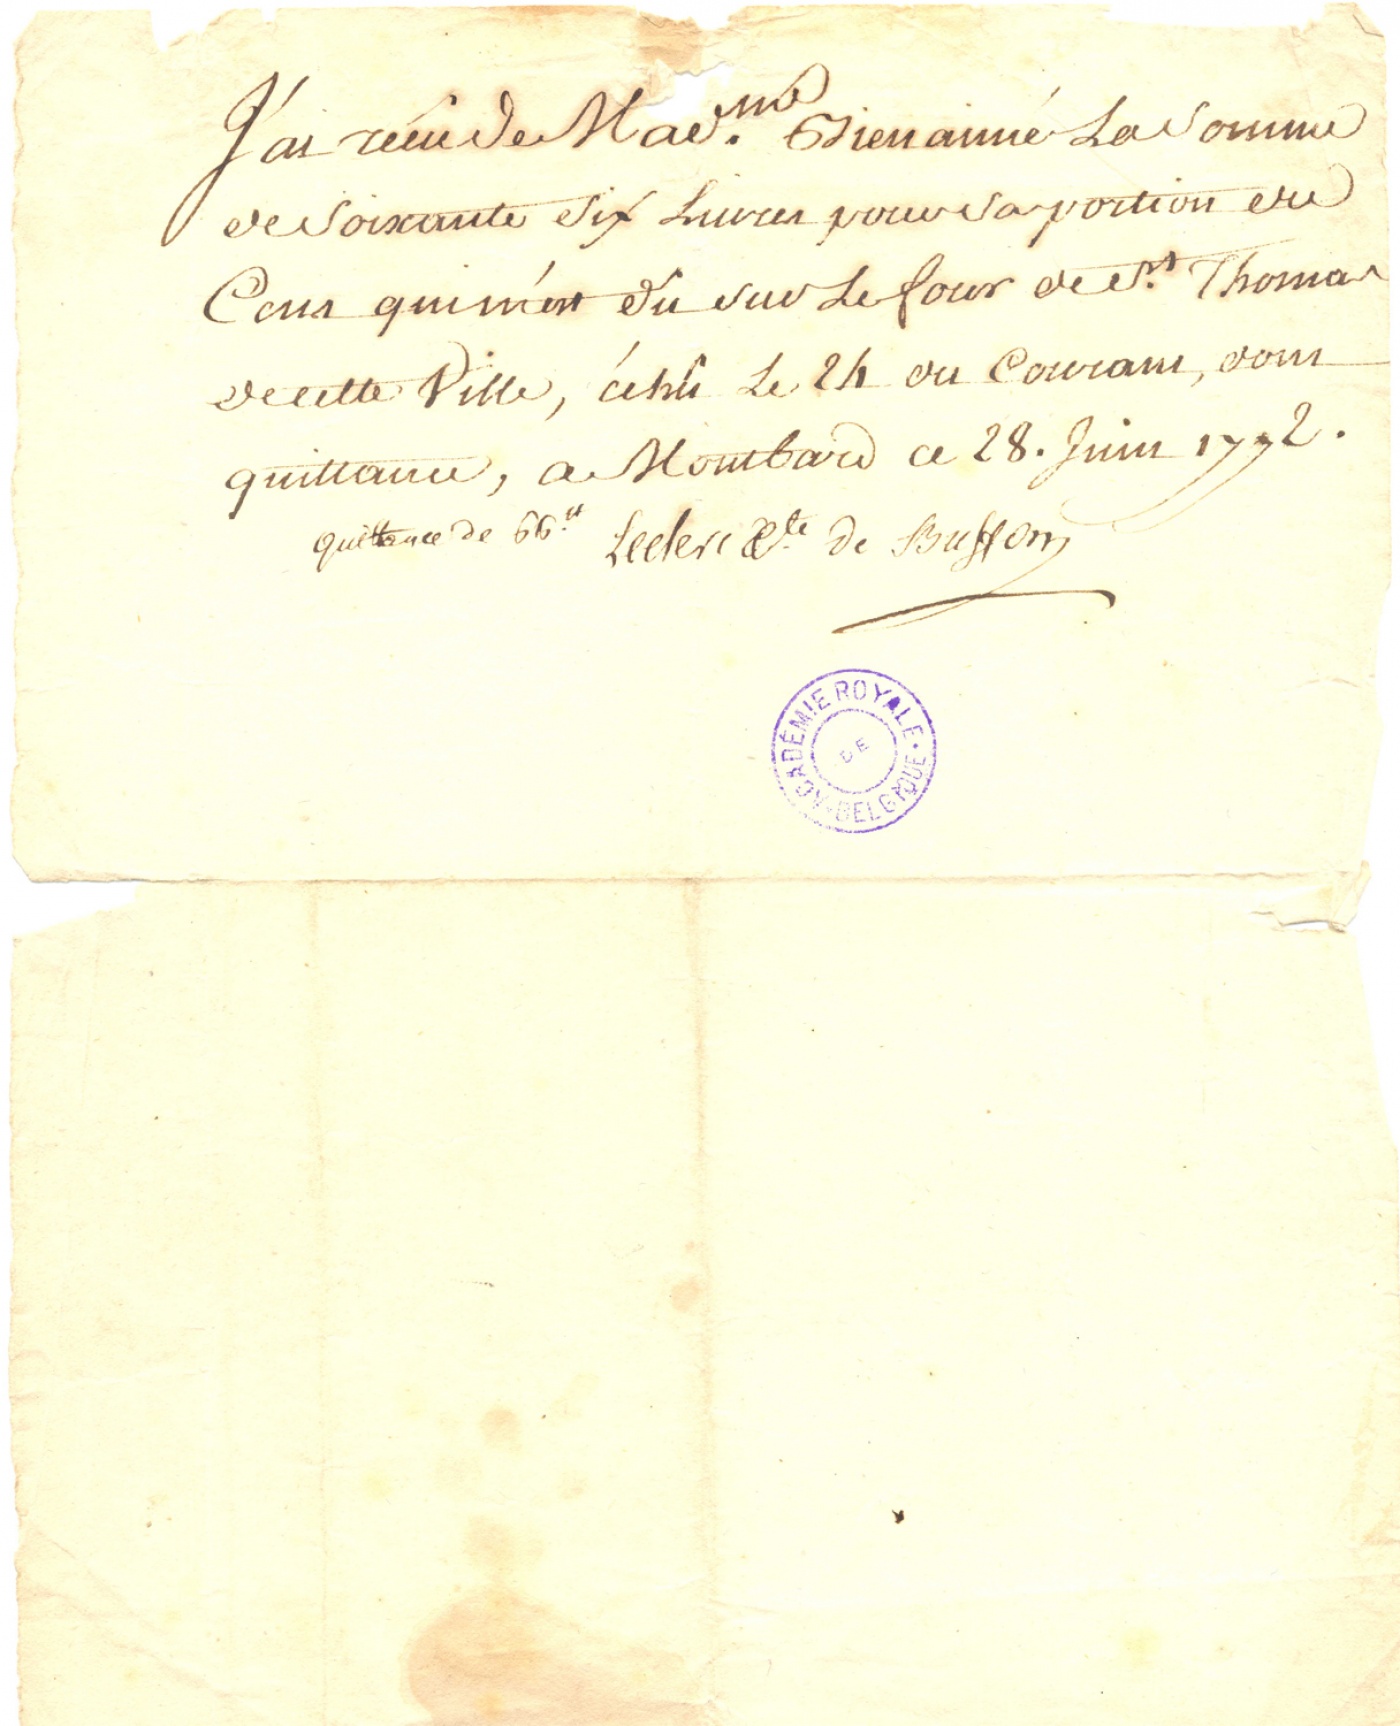 J'ai reçû de Mad.me Bienaimé La Somme
de Soixante Six Livres pour Sa portion du
Cens qui m'est dû sur Le four de St. Thomas
de cette Ville, échû Le 24 du Courant, dont
quittance, a Montbard ce 28. Juin 1772.
quittance de 66.tt Leclerc Cte. de Buffon
ACADÉMIE ROYALE
DE
BELGIQUE